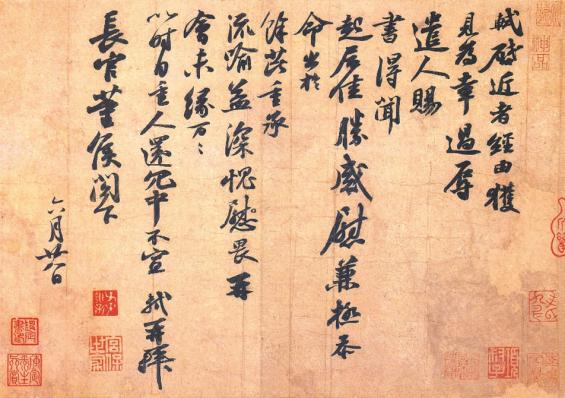 軾啟近者經由獲
見為幸過辱
遣人賜
書得聞
起居佳勝感慰兼極忝
命出於
餘芘重承
流喻益深愧慰畏再
會未緣万〻
以时自重人還冗中不宣 軾再拜
長官董侯閣下
六月廿八日